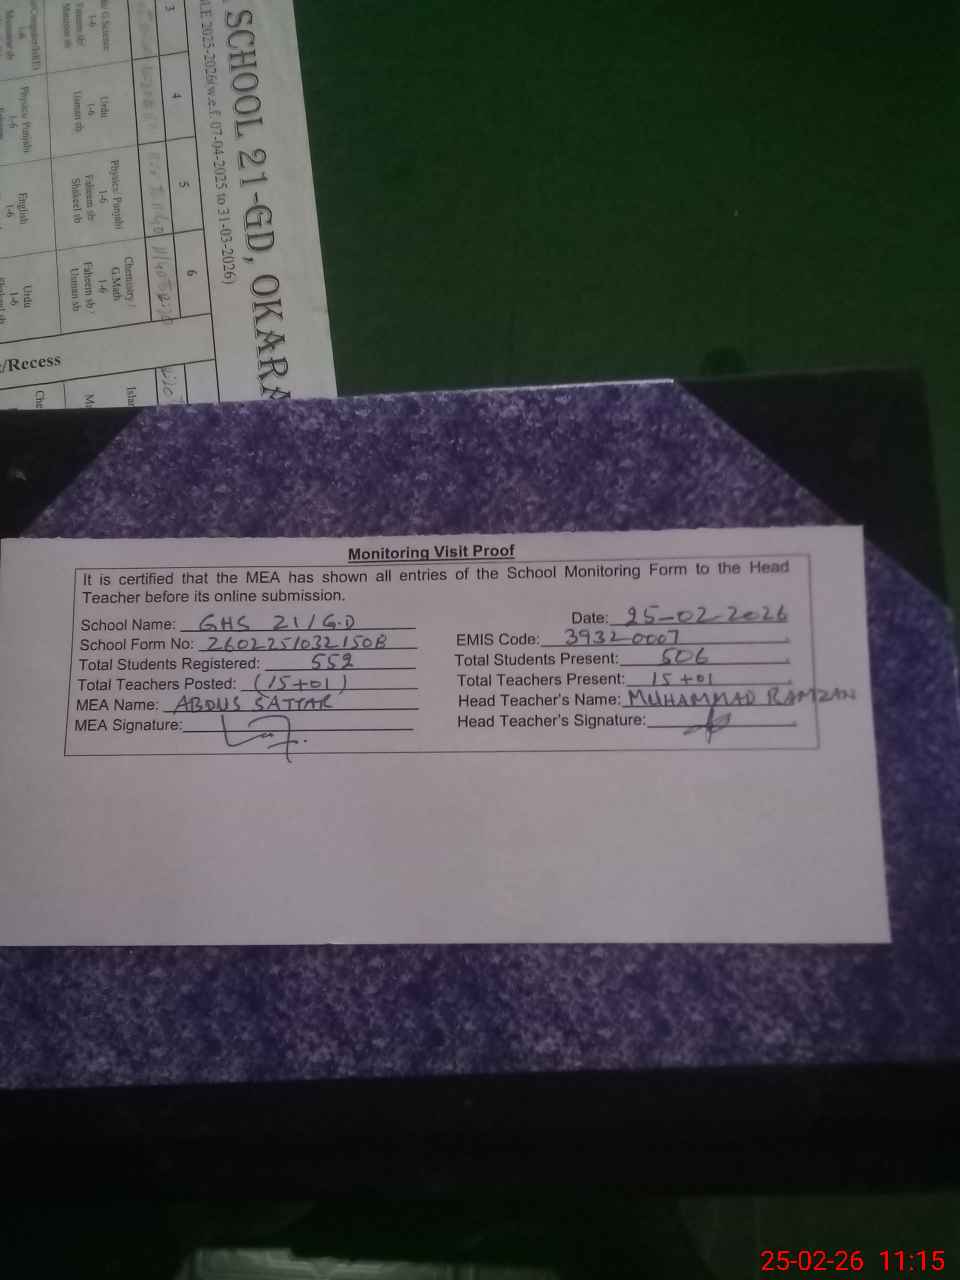 SCHOOL 21-GD, OKARA
2025-2026(w.e.f. 07-04-2025 to 31-03-2026)
3
4
5
6
G.Science
1-6
Urdu
1-6
Usman sb
Physics/ Punjabi
1-6
Faheem sb/
Shakeel sb
Chemistry /
G.Math
1-6
Faheem sb /
Usman sb
Physics/ Punjabi
1-6
English
1-6
Urdu
1-6
/Recess
Monitoring Visit Proof
It is certified that the MEA has shown all entries of the School Monitoring Form to the Head
Teacher before its online submission.
School Name: GHS 21/G.D Date: 25-02-2026
School Form No: 260225103215OB EMIS Code: 39320007
Total Students Registered: 552 Total Students Present: 506
Total Teachers Posted: (15+01) Total Teachers Present: 15+01
MEA Name: ABDUS SATTAR Head Teacher's Name: MUHAMMAD RAMZAN
MEA Signature: Head Teacher's Signature:
25-02-26 11:15